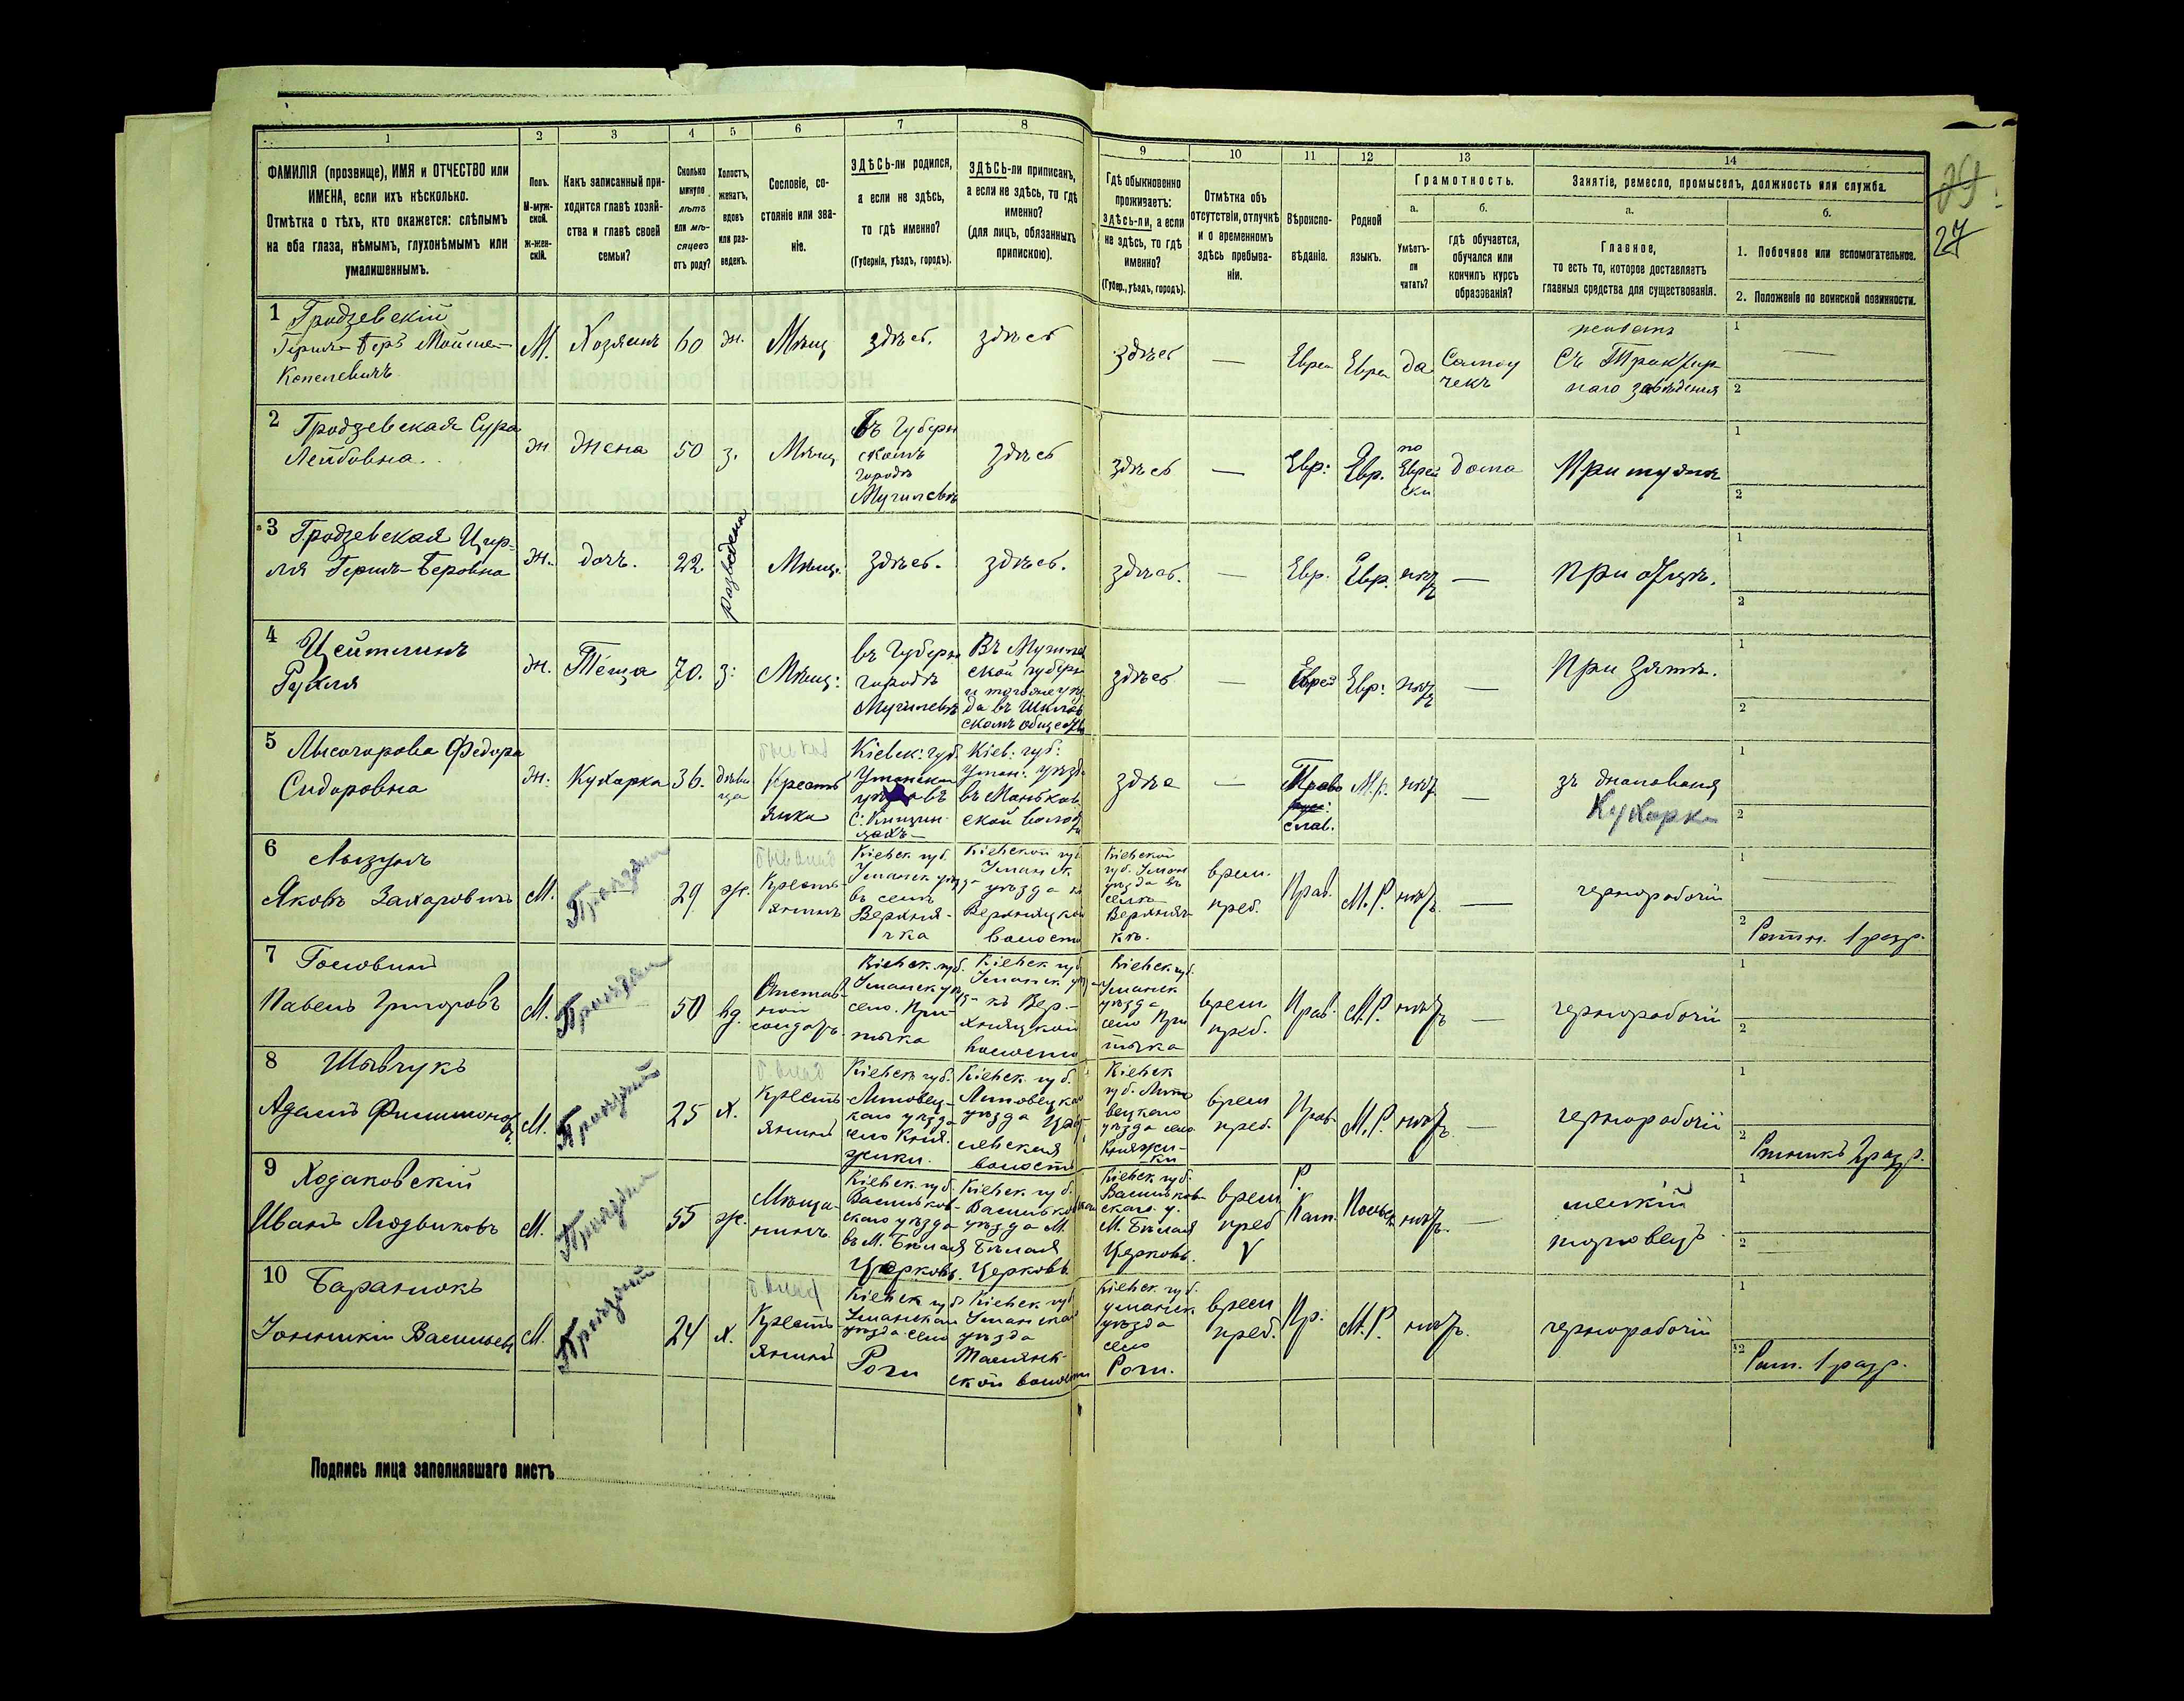 1 2 3 4 5 6 7 8 9 10 11 12 13 14
ФАМИЛІЯ (прозвище), ИМЯ и ОТЧЕСТВО или
ИМЕНА, если ихъ нѣсколько.
Отмѣтка о тѣхъ, кто окажется: слѣпымъ
на оба глаза, нѣмымъ, глухонѣмымъ или
умалишеннымъ.
Полъ.
М-муж-
ской.
Ж-жен-
скій.
Какъ записанный при-
ходится главѣ хозяй-
ства и главѣ своей
семьи?
Сколько
минуло
лѣтъ
или мѣ-
сяцевъ
отъ роду?
Холостъ,
женатъ,
вдовъ
или раз-
веденъ.
Сословіе, со-
стояніе или зва-
ніе.
ЗДѢСЬ-ли родился,
а если не здѣсь,
то гдѣ именно?
(Губернія, уѣздъ, городъ).
ЗДѢСЬ-ли приписанъ,
а если не здѣсь, то гдѣ
именно?
(для лицъ, обязанныхъ
припискою).
Гдѣ обыкновенно
проживаетъ:
здѣсь-ли, а если
не здѣсь, то гдѣ
именно?
(Губер., уѣздъ, городъ).
Отмѣтка объ
отсутствіи, отлучкѣ
и о временномъ
здѣсь пребыва-
ніи.
Вѣроиспо-
вѣданіе.
Родной
языкъ.
Грамотность.
а.
Умѣетъ-
ли
читать?
б.
гдѣ обучается,
обучался или
кончилъ курсъ
образованія?
Занятіе, ремесло, промыселъ, должность или служба.
а.
Главное,
то есть то, которое доставляетъ
главныя средства для существованія.
б.
1. Побочное или вспомогательное.
2. Положеніе по воинской повинности.
27
1 Гродзевскій
Гершъ-Беръ Мойше-
Копелевичъ
М.
Хозяинъ
60
ж.
Мѣщ
здѣсь.
здѣсь
здѣсь
—
Евреи
Евреи
да
Самоу
чекъ
Съ Трактир
наго заведенія
1
2
2 Гродзевская Сура
Лейбовна.
ж
Жена
50
з.
Мѣщ
Въ Губерн
скомъ
городѣ
Мугилевѣ
здѣсь
здѣсь
—
Евр:
Евр.
по
Еврей
ски
дома
При мужѣ
1
2
3 Гродзевская Цир-
ля Гершъ-Беровна
ж.
дочь.
22
разведена
Мѣщ.
здѣсь.
здѣсь.
здѣсь.
—
Евр.
Евр.
нѣтъ
—
При отцѣ.
1
2
4 Цейтлинъ
Рухля
ж.
Тёща
70.
з:
Мѣщ:
въ Губерн
городѣ
Мугилевѣ
Въ Мугилев
ской губерн
да въ Шклов
скомъ обществ
здѣсь
—
Еврей
Евр:
нѣтъ
—
При Зятѣ.
1
2
5 Лысогорова Федора
Сидоровна
ж.
Кухарка
36.
дѣви
ца
Крестъ
янка
Кіевск: губ.
Уманска
С:
Кіев: губ:
Уман: уѣзд
въ Маньков
ской волост
здѣс
—
Право
слав.
М.р.
нѣт
—
зъ жалованя
Кухарка
1
2
6 Лызунъ
Яковъ Захаровичъ
М.
29
ж.
Кресть-
янинъ
Кіевск губ.
Уманск уѣзда
въ селѣ
Верхня-
чка
Кіевской губ
Уманск
уѣзда
Верхняцкой
волости
Кіевской
губ. Уман
уѣзда въ
селѣ
Верхняч-
кѣ.
врем.
преб.
Прав.
М.Р.
нѣтъ.
—
чернорабочій
1
2 Ратн. 1 разр.
7
Павелъ Григоровъ
М.
50
вд.
Отстав-
ной
солдатъ
Кіевск губ.
Уманск уѣз
село
Кіевск губ
Уманск уѣз
къ Вер-
хняцкой
волости
Кіевск губ.
Уманск
уѣзда
село
врем
преб.
Прав.
М.Р.
нѣтъ
—
чернорабочій
1
2
8 Шевчукъ
Адамъ Филимоновъ
М.
25
х.
Кресть
янинъ
Кіевск губ.
Липовец-
каго уѣзда
село Кня-
жики.
Кіевск губ.
Липовецка
уѣзда
волость
Кіевск
губ. Липо
вецкаго
уѣзда село
Княжи-
ки
врем
преб.
Прав.
М.Р.
нѣтъ.
—
чернорабочій
1
2 Ратникъ 2 разр.
9 Ходаковскій
Иванъ Людвиковъ
М.
55
ж.
Мѣща-
нинъ
Кіевск губ.
Васильков-
скаго уѣзда
въ М. Бѣлая
Церковь.
Кіевск губ.
Василько
уѣзда М.
Бѣлая
Церковь
Кіевск губ.
Васильков
скаго у.
М. Бѣлая
Церковь.
врем
преб
Р.
Кат.
Польск
нѣтъ.
—
мелкій
торговецъ
1
2
10 Баранюкъ
Іоникій Васильевъ
М.
24
х.
Кресть
янинъ
Кіевск губ
Уманскаго
уѣзда село
Роги
Кіевск губ
Уманска
уѣзда
ской волости
Кіевск губ.
уманск
уѣзда
село
Роги.
врем
преб.
Пр.
М.Р.
нѣтъ.
чернорабочій
1
2 Рат. 1 разр.
Подпись лица заполнявшаго листъ